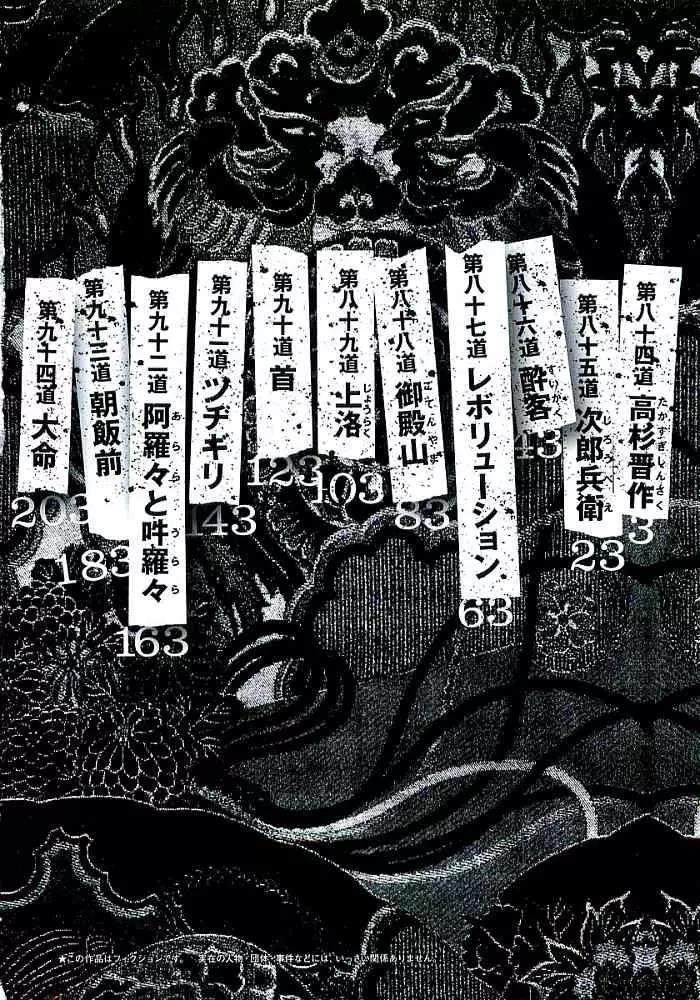 第八十四道 高杉晋作
たかすぎしんさく
3
第八十五道 次郎兵衛
じろうべえ
23
第八十六道 酔客
すいかく
43
第八十七道 レボリューション
63
第八十八道 御殿山
ごてんやま
83
第八十九道 上洛
じょうらく
103
第九十道 首
123
第九十一道 ツヂギリ
143
第九十二道 阿羅々と吽羅々
あらら うらら
163
第九十三道 朝飯前
183
第九十四道 大命
203
★この作品はフィクションです。 実在の人物・団体・事件などには、いっさい関係ありません。